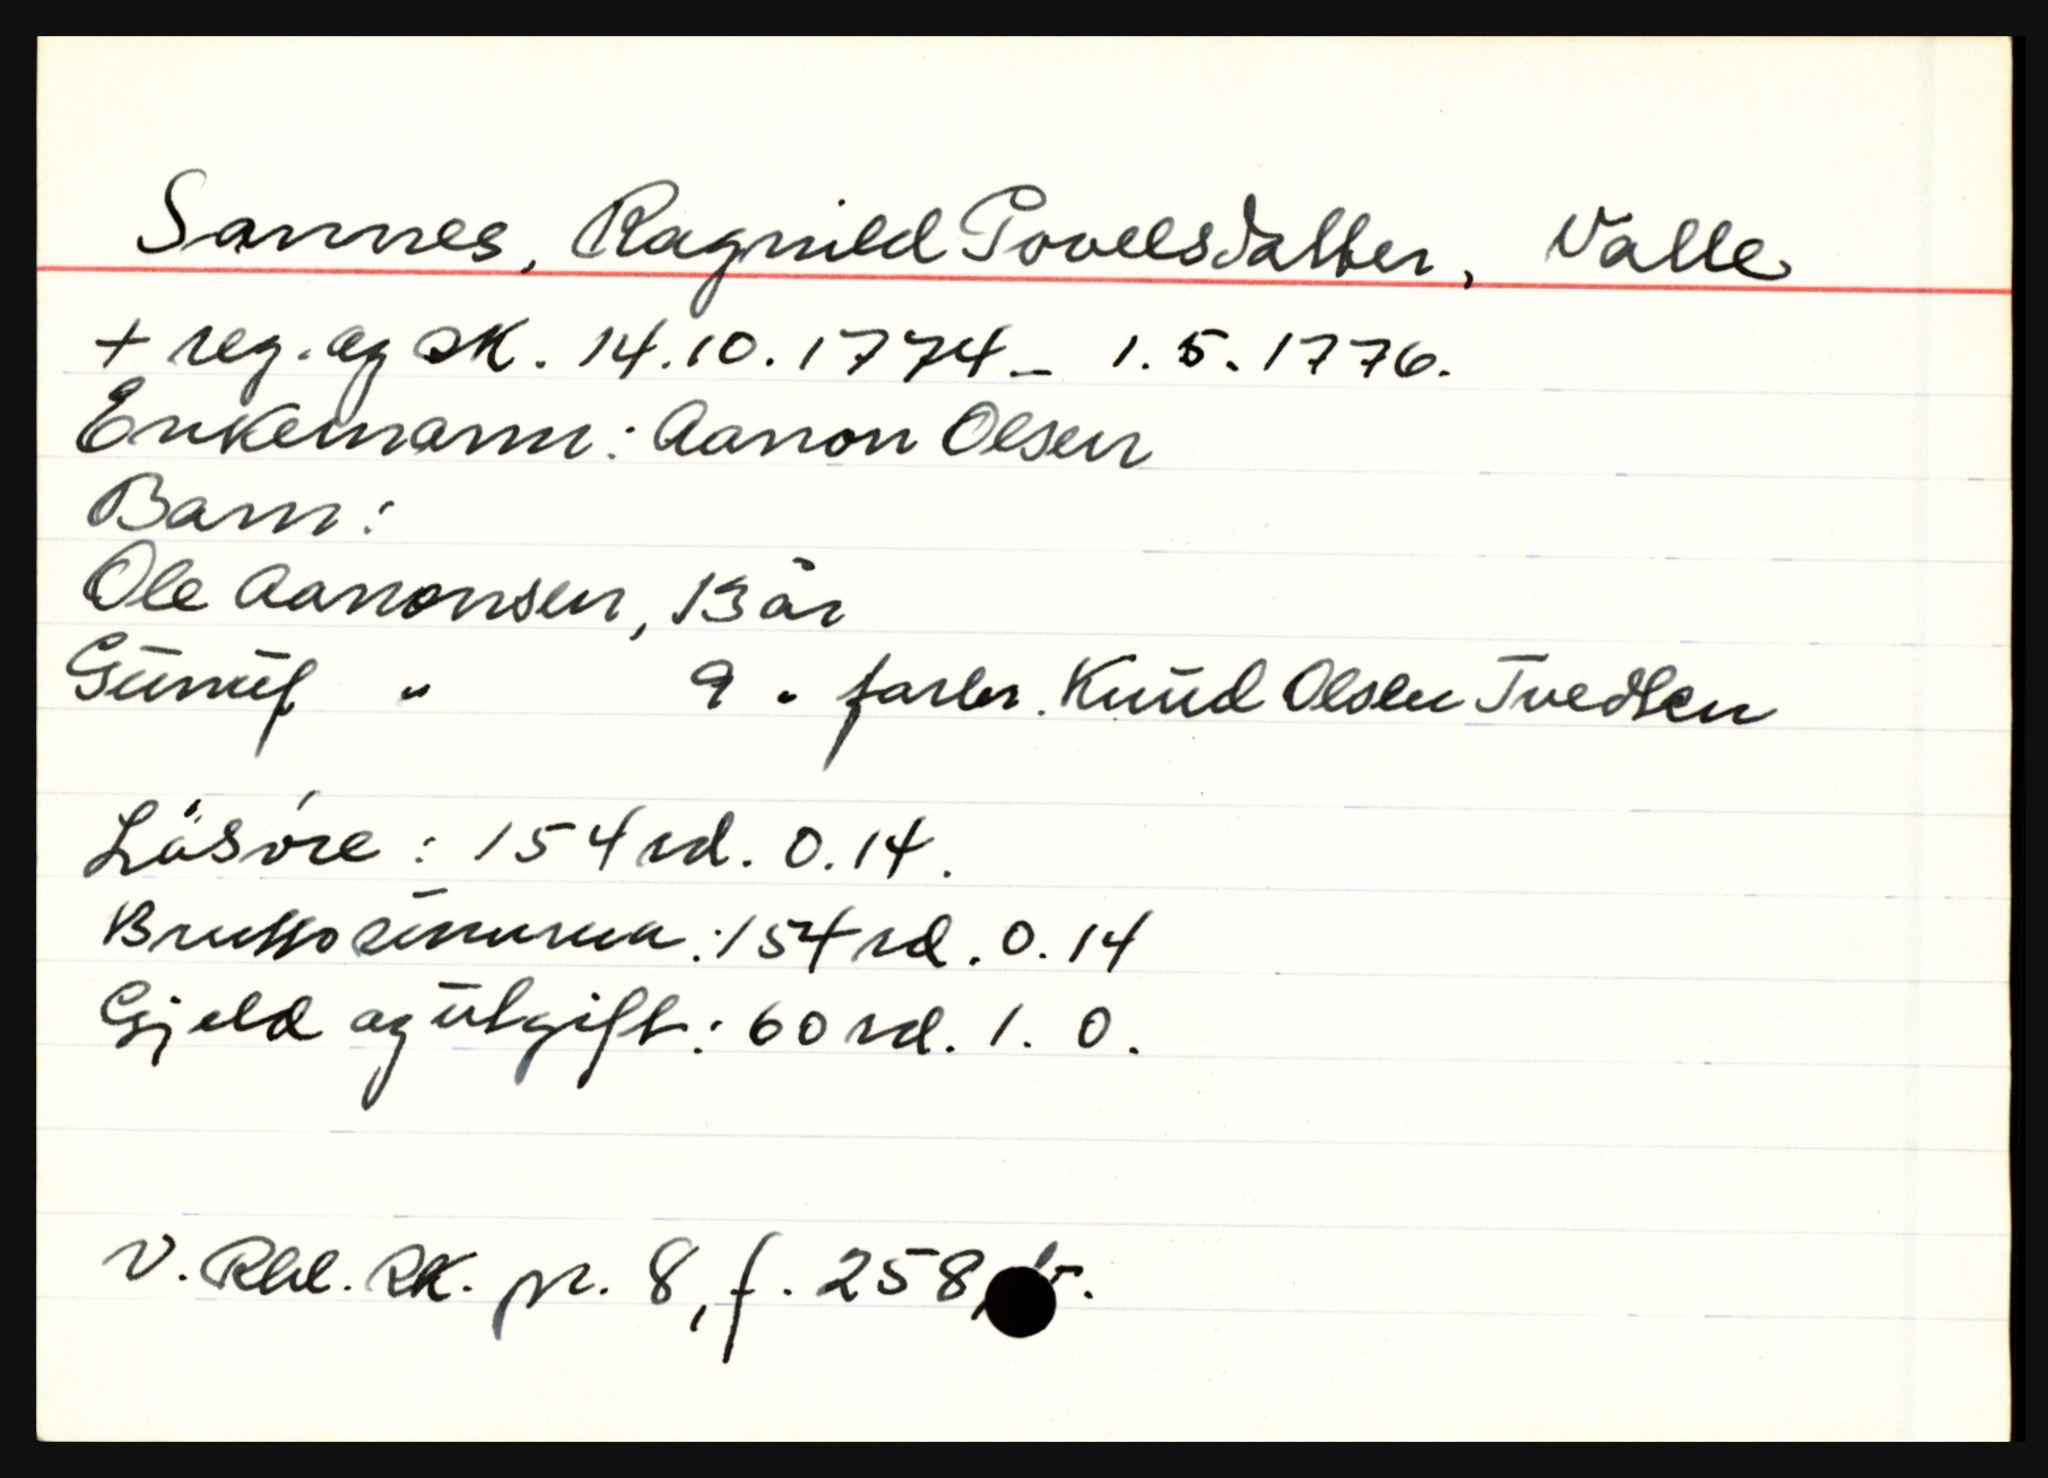 Sannes, Ragnild Povelsdatter, Valle
+ reg. og sk. 14.10.1774 – 1.5.1776.
Enkemann: Aanon Olsen
Barn:
Ole Aanonsen, 13 år
Gunuf " 9 " farbr. Knud Olsen Tvedten
Lösöre: 154 rd. 0. 14.
Bruttosumma: 154 rd. 0. 14
Gjeld og utgift: 60 rd. 1. 0.
V. Rbl. RK. pr. 8, f. 258,